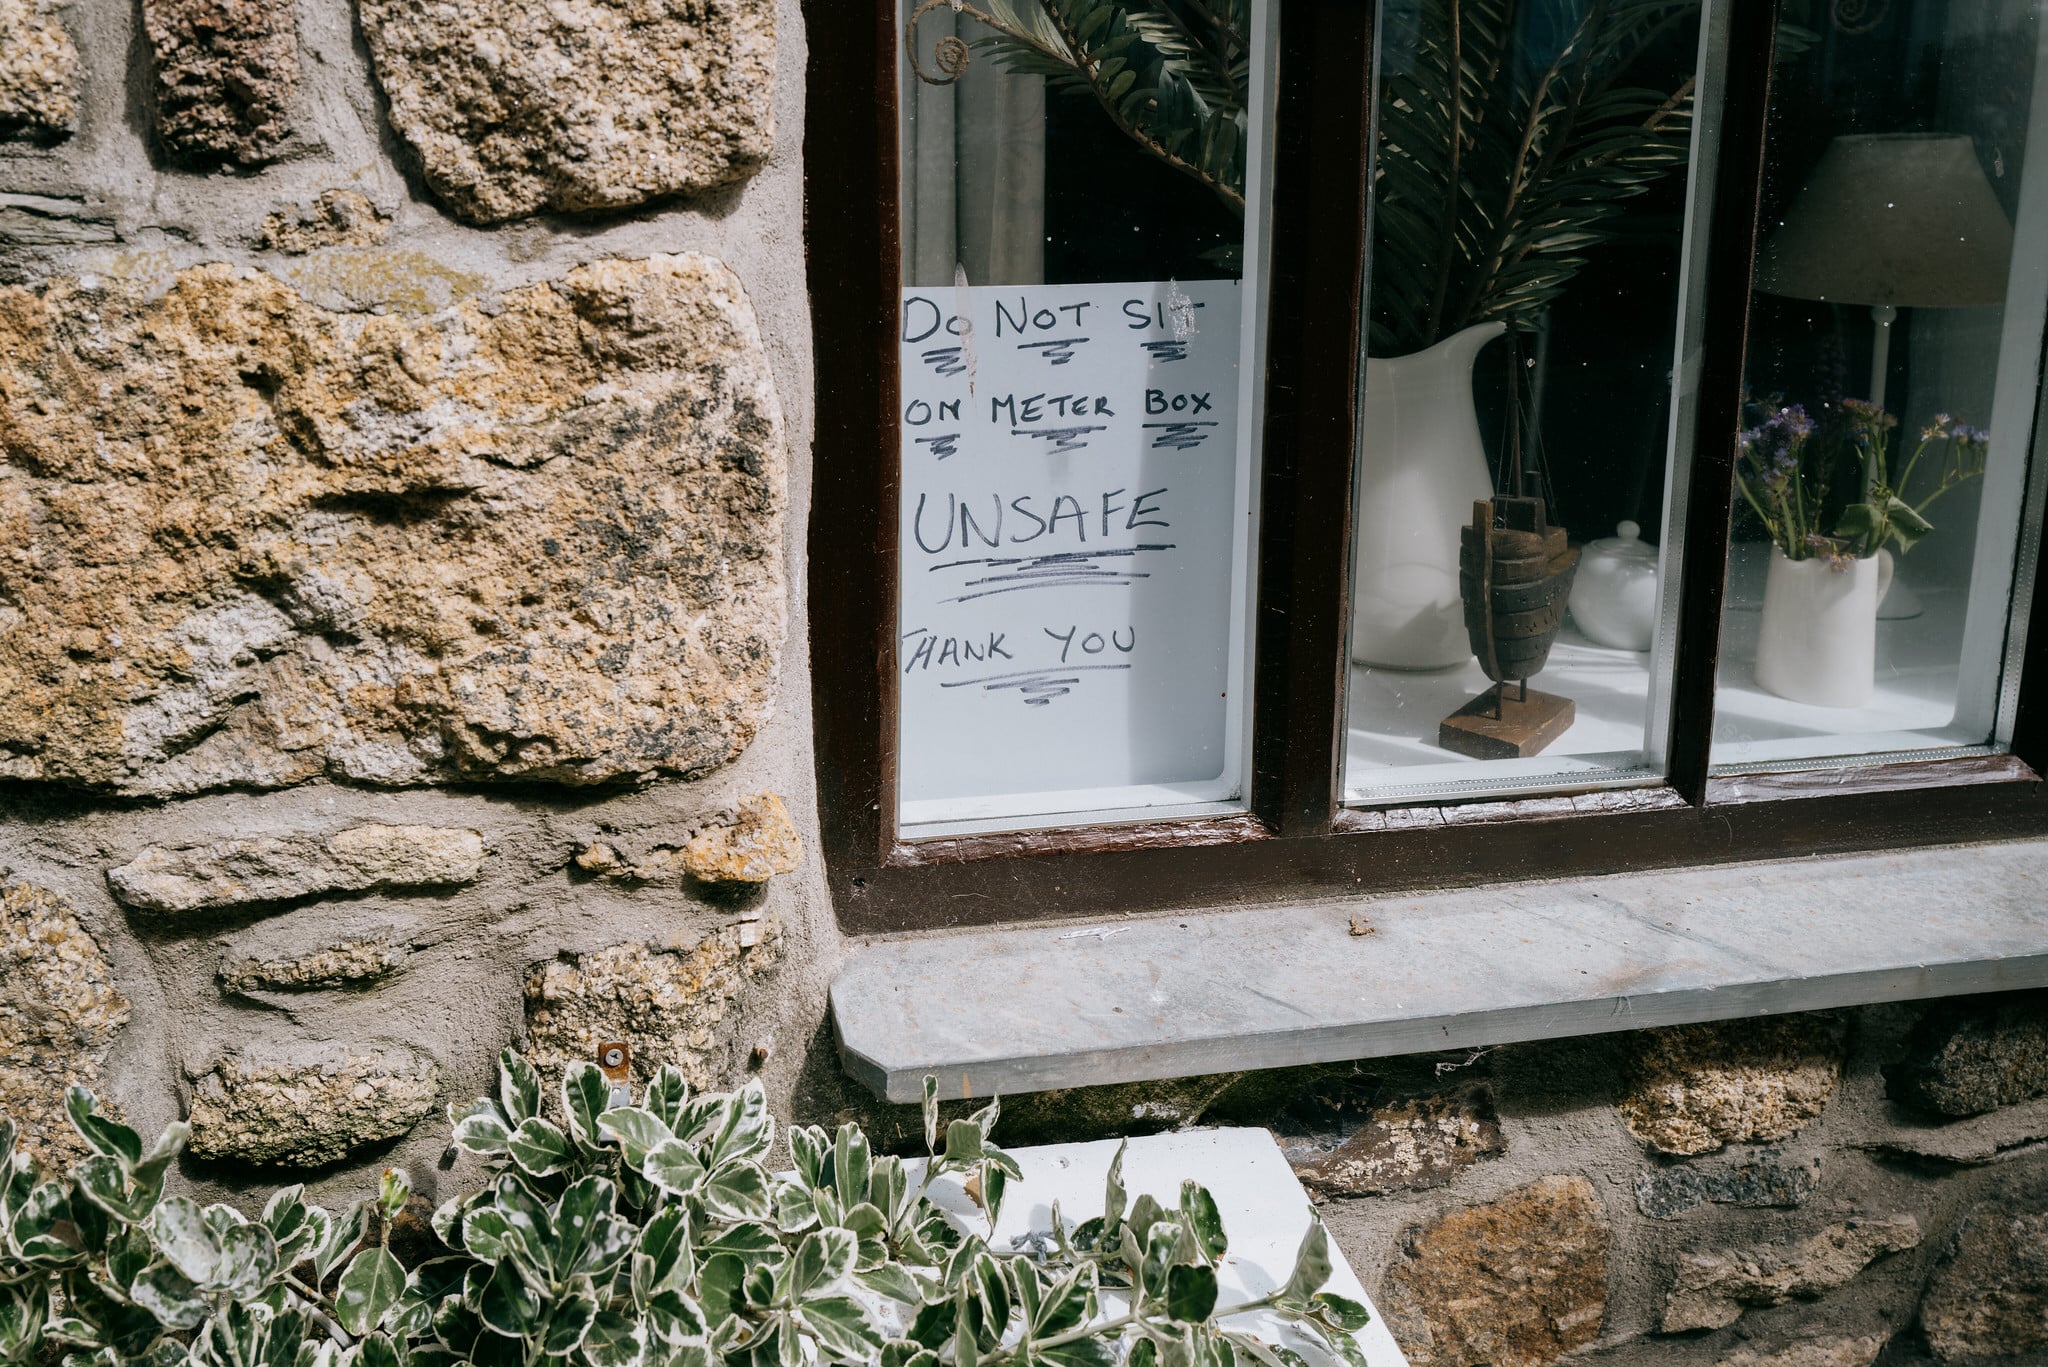 DO NOT SIT
ON METER BOX
UNSAFE
THANK YOU